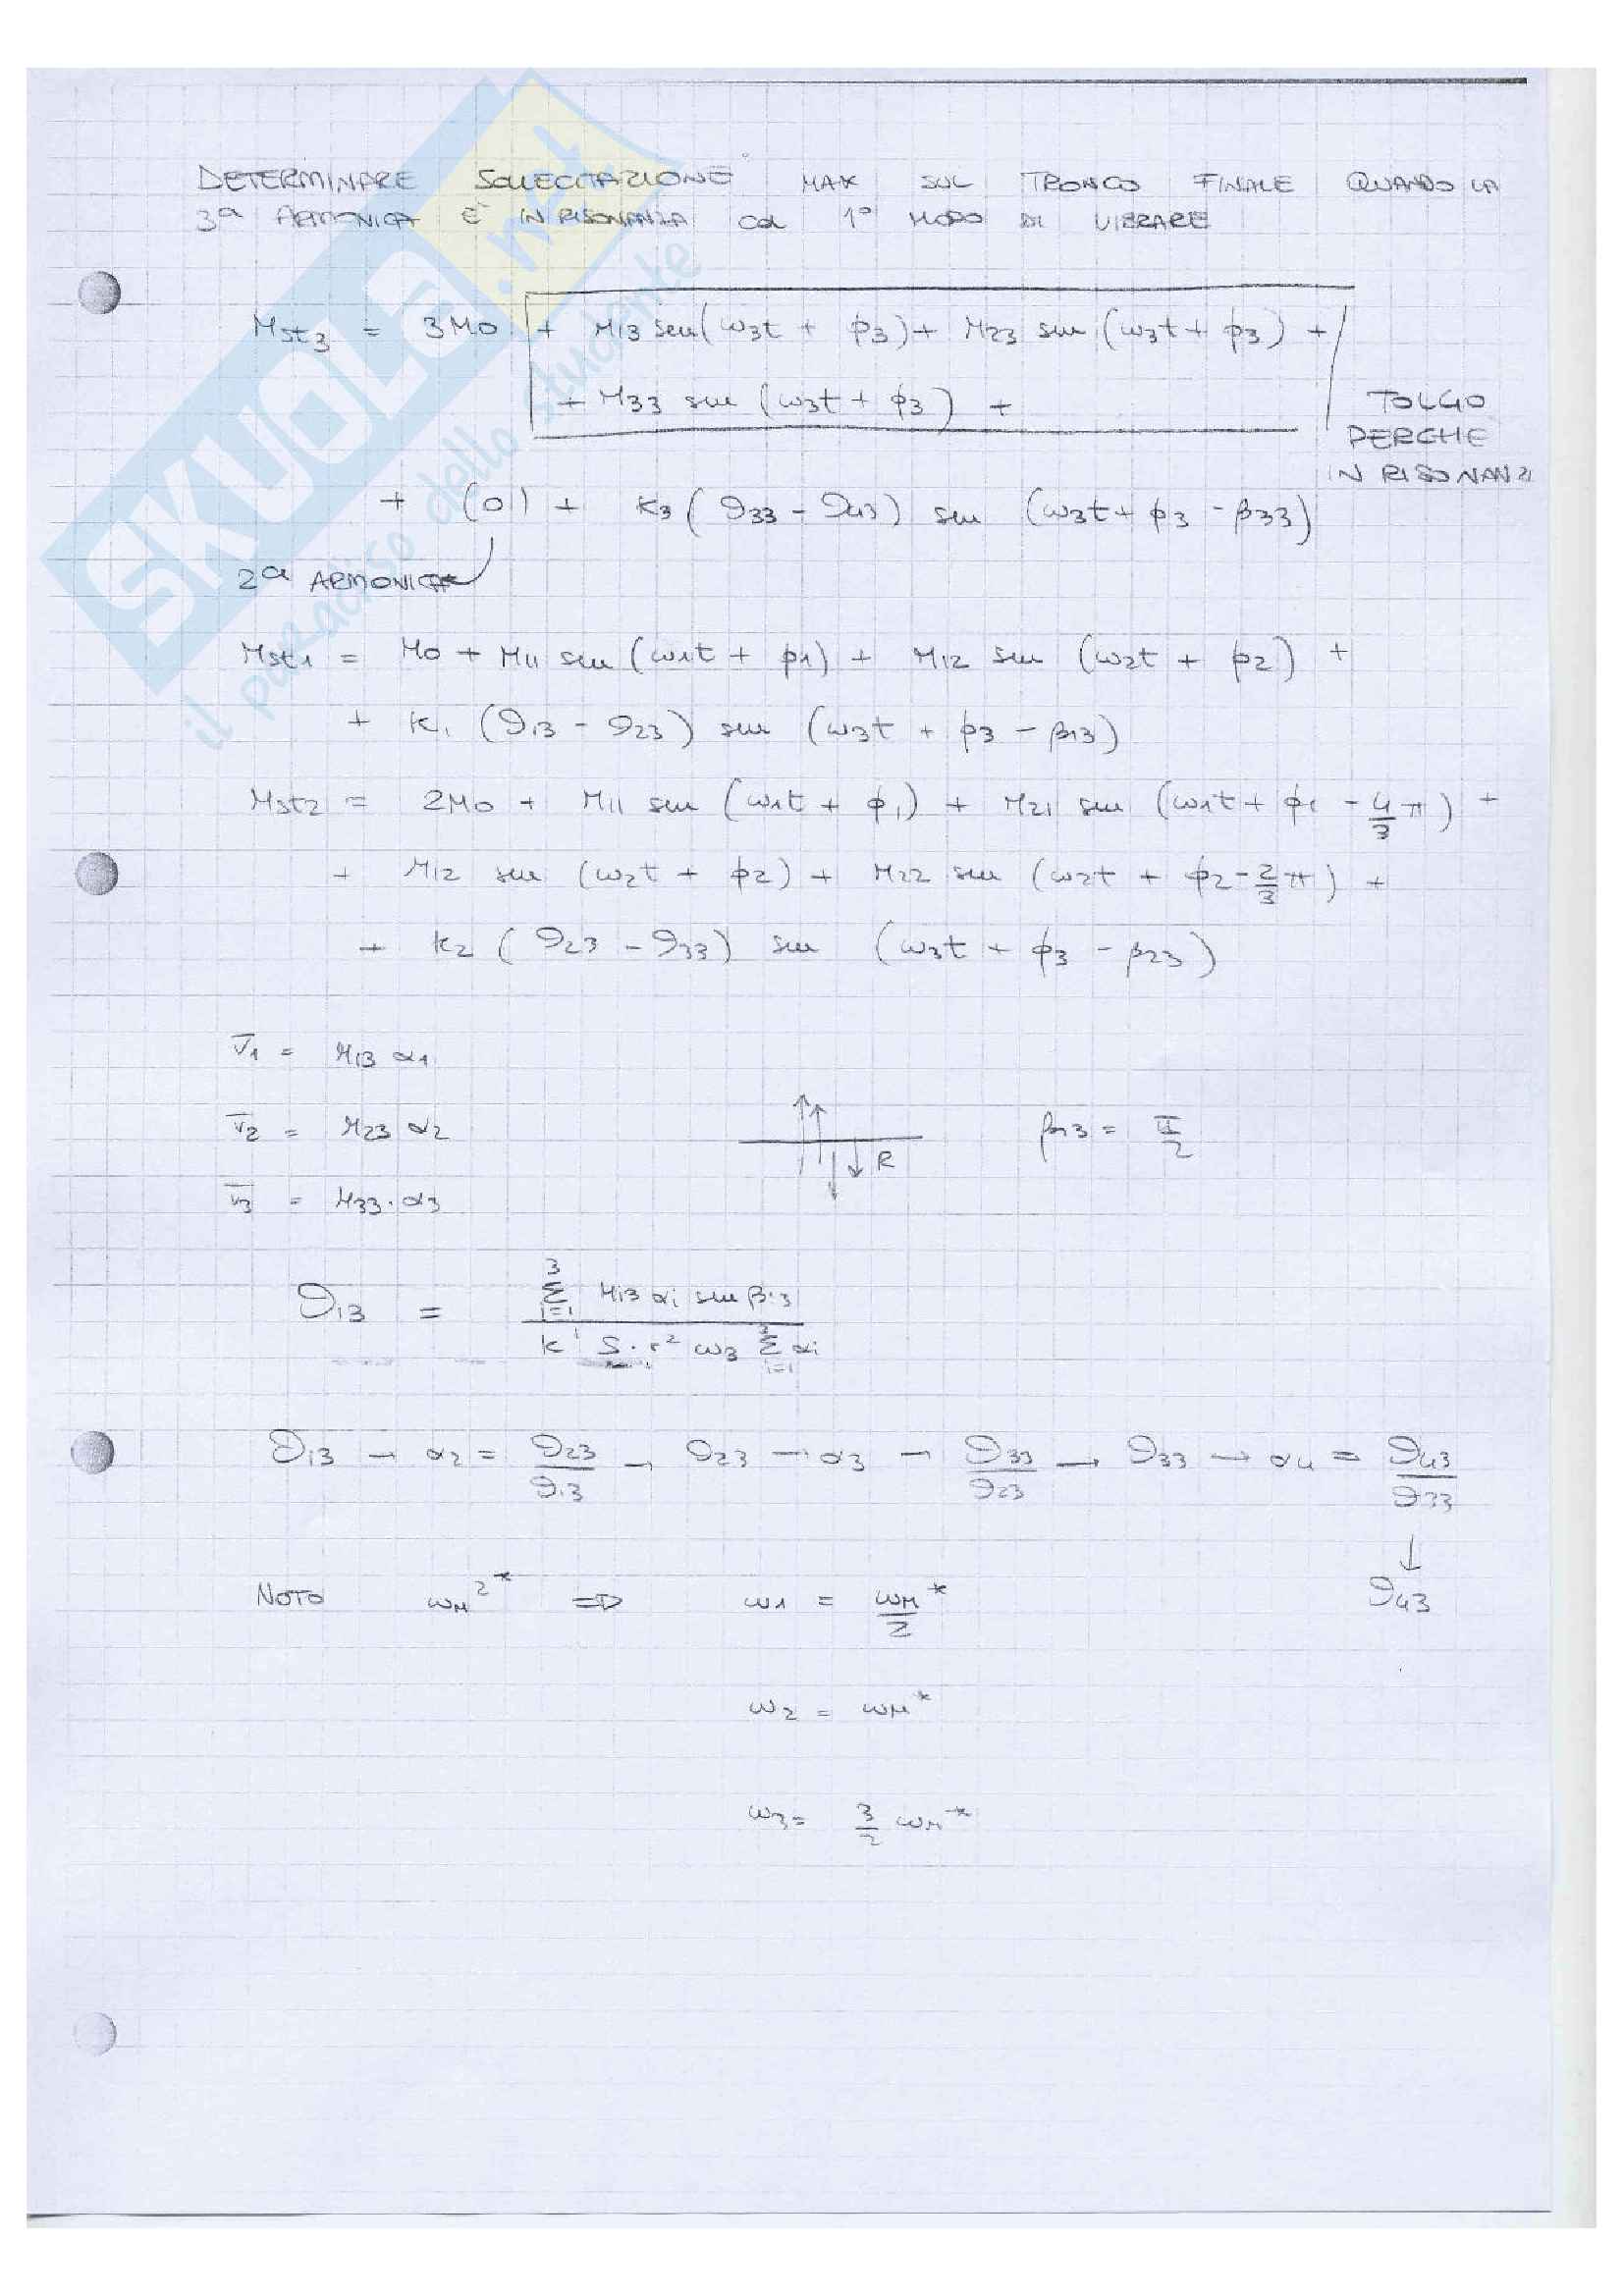 DETERMINARE SOLLECITAZIONE MAX SUL TRONCO FINALE QUANDO LA
3ª ARMONICA E' IN RISONANZA COL 1° MODO DI VIBRARE
Mst3 = 3M0 + M13 sen(ω3t + φ3) + M23 sen (ω3t + φ3) +
+ M33 sen (ω3t + φ3) +
TOLGO
PERCHE
IN RISONANZ
+ (0) + K3 (ϑ33 - ϑ43) sen (ω3t + φ3 - β33)
2ª ARMONICA
Mst1 = M0 + M11 sen (ω1t + φ1) + M12 sen (ω2t + φ2) +
+ K1 (ϑ13 - ϑ23) sen (ω3t + φ3 - β13)
Mst2 = 2M0 + M11 sen (ω1t + φ1) + M21 sen (ω1t + φ1 - 4/3 π) +
+ M12 sen (ω2t + φ2) + M22 sen (ω2t + φ2 - 2/3 π) +
+ K2 (ϑ23 - ϑ33) sen (ω3t + φ3 - β23)
V̄1 = M13 α1
V̄2 = M23 α2
R
β13 = π/2
V̄3 = M33 · α3
ϑ13 = Σ i=1 3 Mi3 αi sen βi3 / K' S · r² ω3 Σ i=1 3 αi
ϑ13 → α2 = ϑ23/ϑ13 → ϑ23 → α3 = ϑ33/ϑ23 → ϑ33 → α4 = ϑ43/ϑ33
↓
ϑ43
NOTO ωM²* ⇒ ω1 = ωM*/2
ω2 = ωM*
ω3 = 3/2 ωM*
SKUOLA.net
il paradiso dello studente